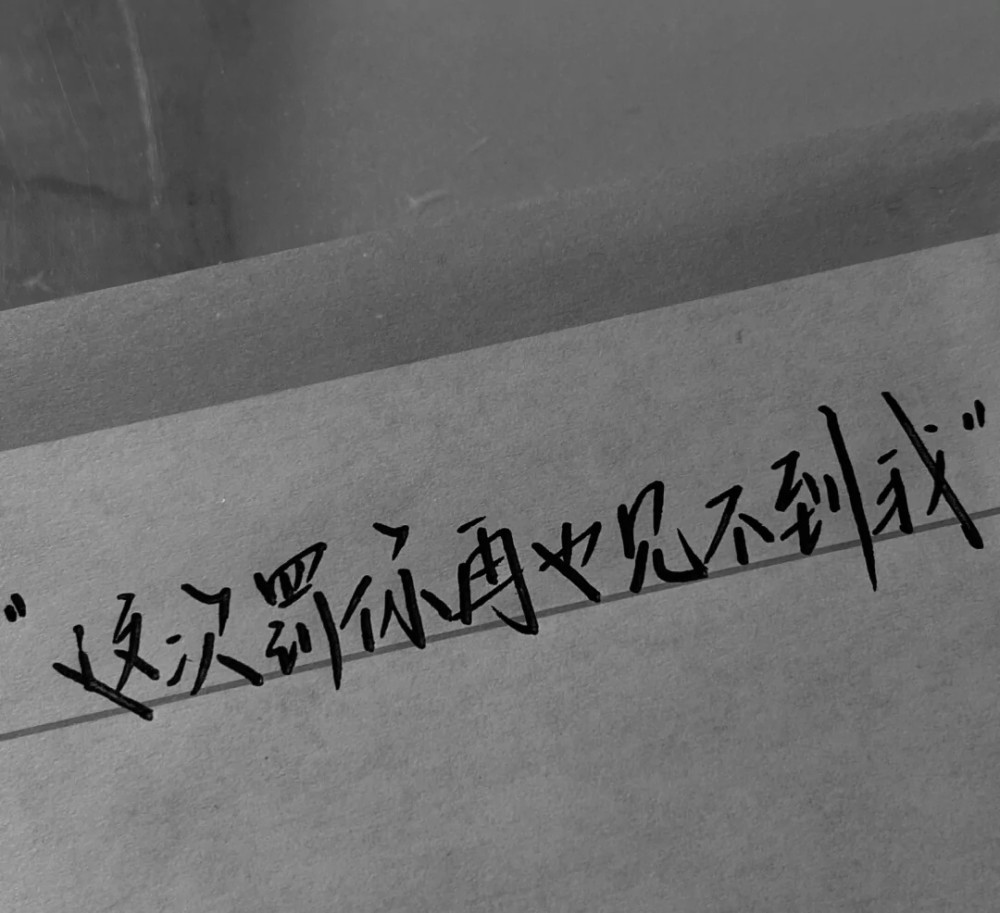 "这次罚你再也见不到我"